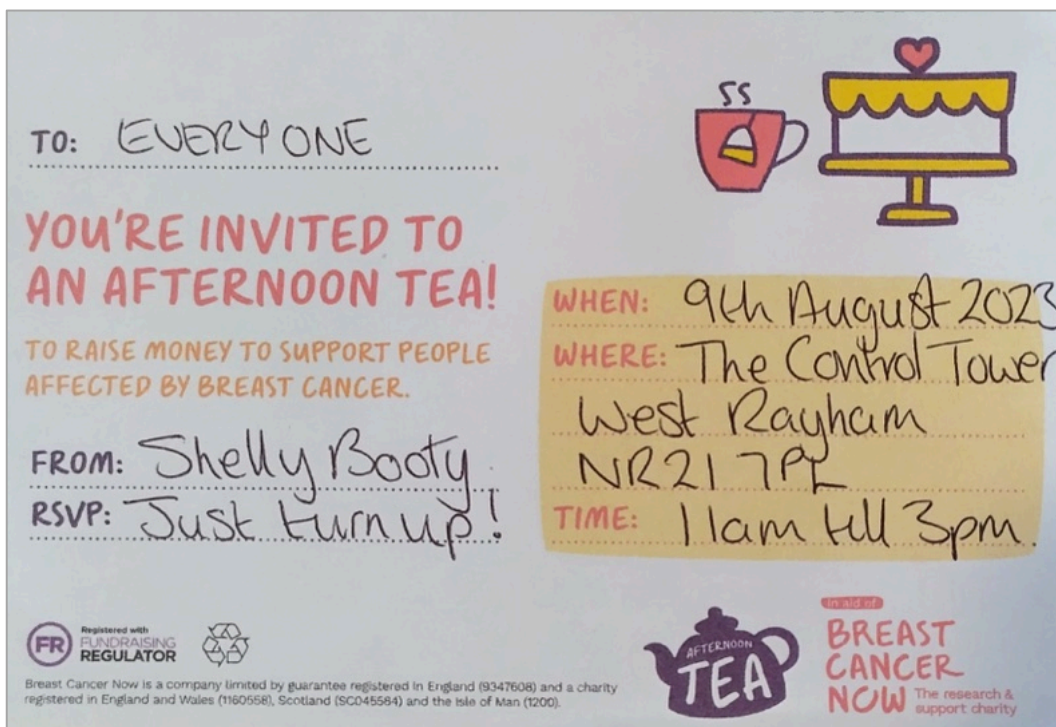 TO: EVERYONE
YOU'RE INVITED TO
AN AFTERNOON TEA!
TO RAISE MONEY TO SUPPORT PEOPLE
AFFECTED BY BREAST CANCER.
FROM: Shelly Booty
RSVP: Just turn up!
WHEN: 9th August 2023
WHERE: The Control Tower
West Rayham
NR21 7PL
TIME: 11am till 3pm.
FR
Registered with
FUNDRAISING
REGULATOR
Breast Cancer Now is a company limited by guarantee registered in England (9347608) and a charity
registered in England and Wales (1160558), Scotland (SC045584) and the Isle of Man (1200).
AFTERNOON
TEA
In aid of
BREAST
CANCER
NOW The research &
support charity